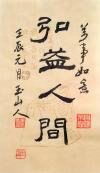 萬事如意
弘益人間
壬辰元旦 玉山人